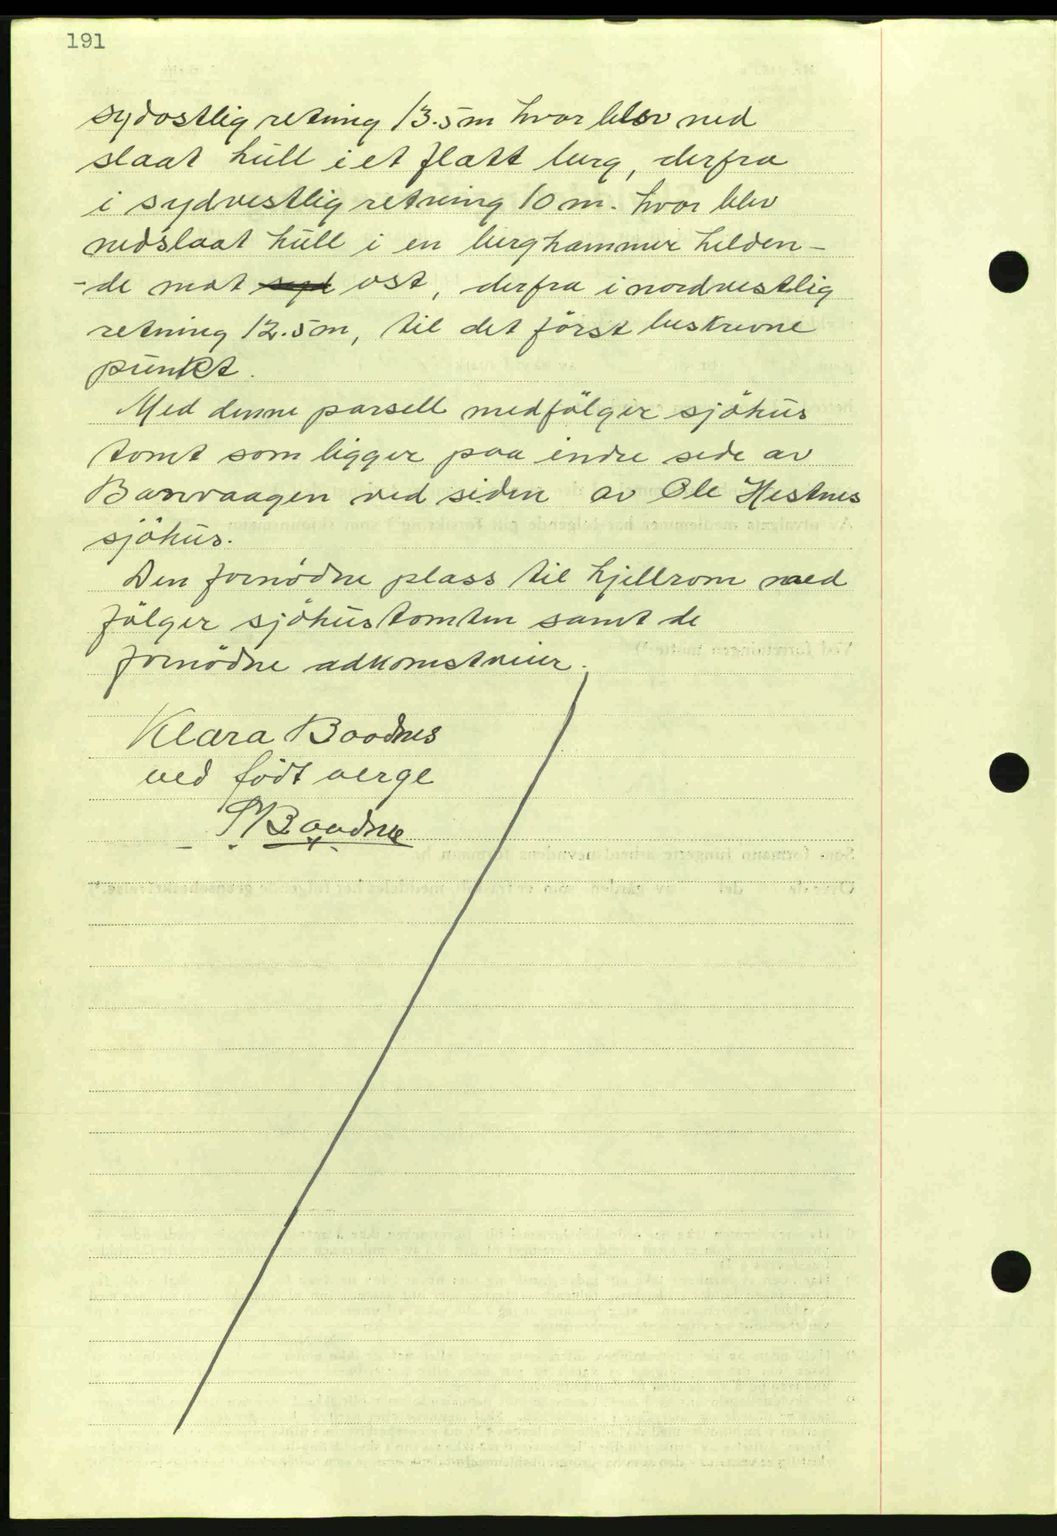 191
sydostlig retning 13.5m hvor blev ned
slaat hull i et flatt berg, derfra
i sydvestlig retning 10 m. hvor blev
nedslaat hull i en berghammer helden-
-de mot syd ost, derfra i nordvestlig
retning 12.5m, til det först beskrevne
punkt.
Med denne parsell medfölger sjöhus
tomt som ligger paa indre side av
Barvaagen ved siden av Ole Hestnes
sjöhus.
Den fornödne plass til hjellrom med
fölger sjöhustomten samt de
fornödne adkomstveier.
Klara Boodnes
ved födt verge